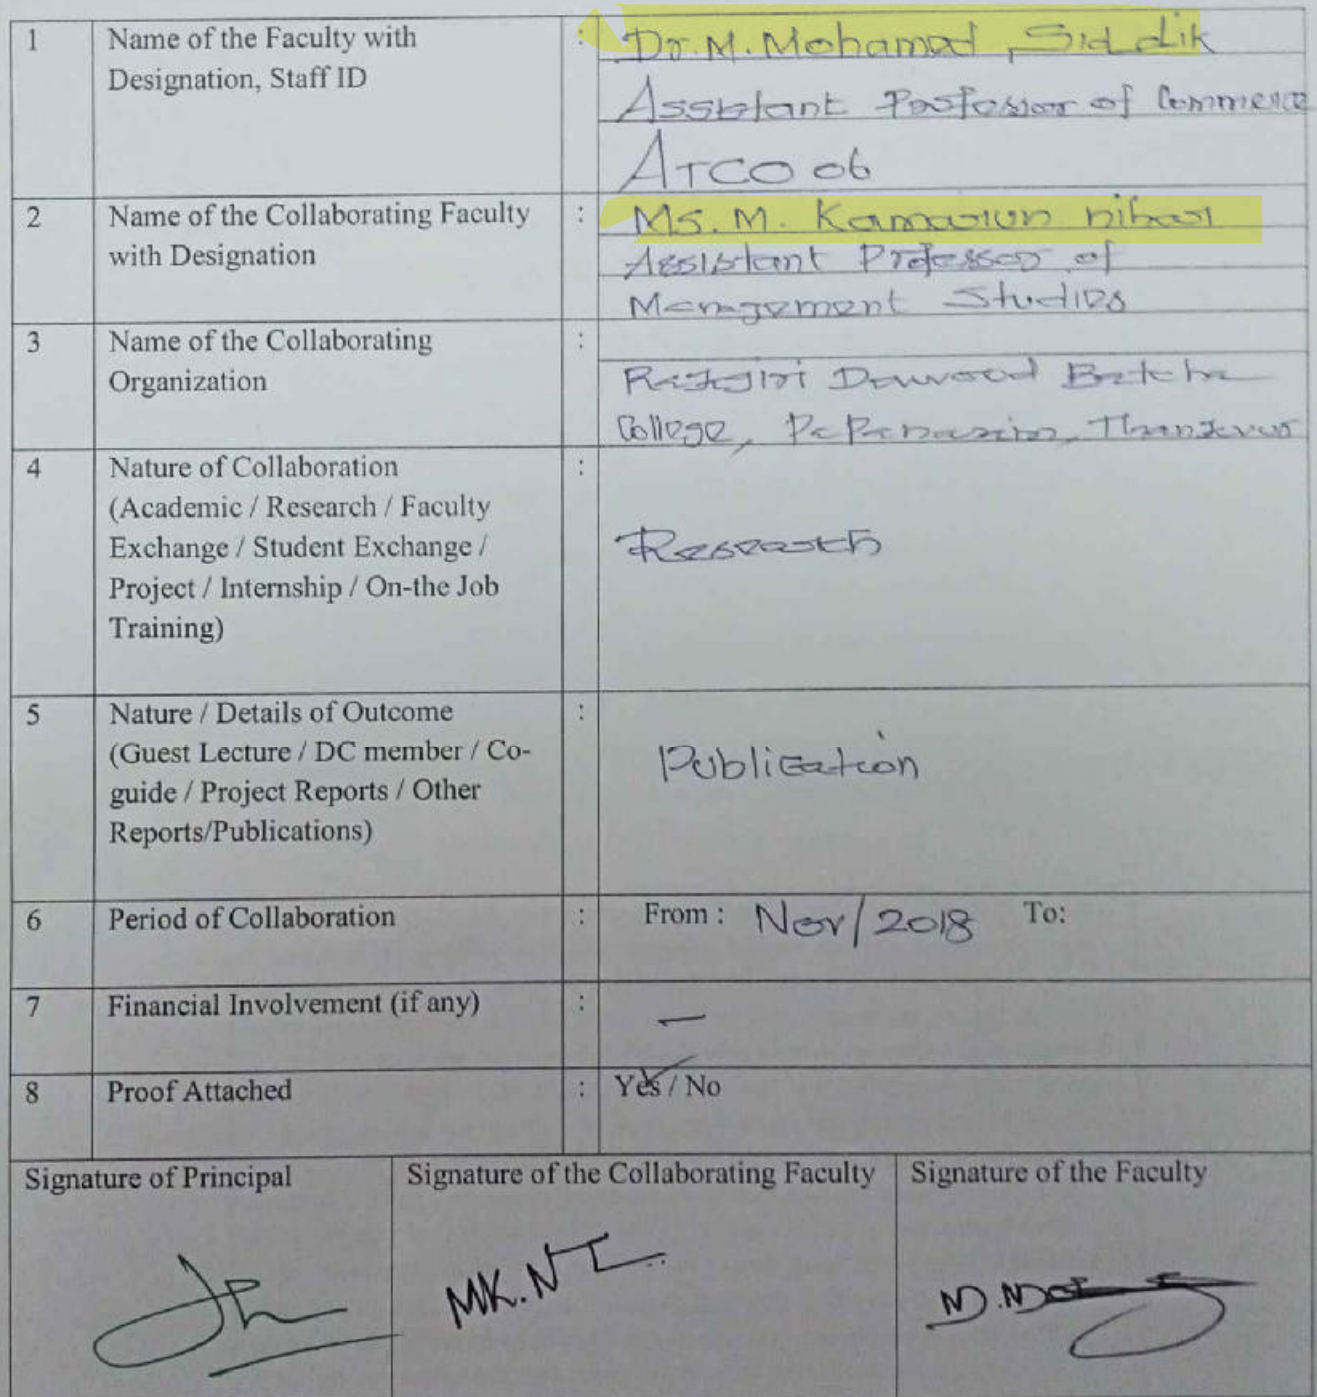 1 Name of the Faculty with : Dr. M. Mohamad Siddik
Designation, Staff ID Assistant Professor of Commerce
ATCO 06
2 Name of the Collaborating Faculty : Ms. M. Kamarun nihar
with Designation Assistant Professor of
Management Studies
3 Name of the Collaborating :
Organization Rajagiri Dawood Batcha
College, Papanasam, Thanjavur
4 Nature of Collaboration :
(Academic / Research / Faculty
Exchange / Student Exchange / Research
Project / Internship / On-the Job
Training)
5 Nature / Details of Outcome :
(Guest Lecture / DC member / Co- Publication
guide / Project Reports / Other
Reports/Publications)
6 Period of Collaboration : From : Nov/2018 To:
7 Financial Involvement (if any) : —
8 Proof Attached : Yes / No
Signature of Principal Signature of the Collaborating Faculty Signature of the Faculty